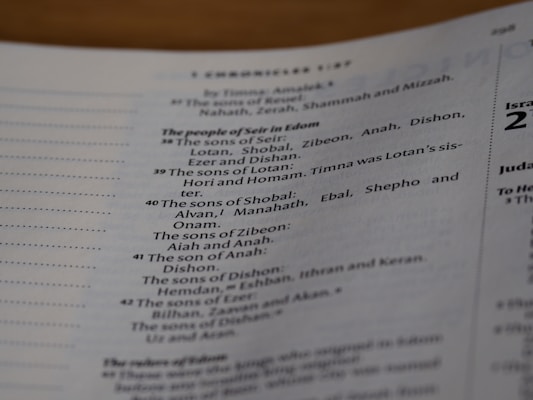 298
1 CHRONICLES 1:37
by Timna: Amalek.
37 The sons of Reuel:
Nahath, Zerah, Shammah and Mizzah.
The people of Seir in Edom
38 The sons of Seir:
Lotan, Shobal, Zibeon, Anah, Dishon,
Ezer and Dishan.
39 The sons of Lotan:
Hori and Homam. Timna was Lotan's sis-
ter.
40 The sons of Shobal:
Alvan,l Manahath, Ebal, Shepho and
Onam.
The sons of Zibeon:
Aiah and Anah.
41 The son of Anah:
Dishon.
The sons of Dishon:
Hemdan,m Eshban, Ithran and Keran.
42 The sons of Ezer:
Bilhan, Zaavan and Akan.n
The sons of Dishan:o
Uz and Aran.
The rulers of Edom
43 These were the kings who reigned in Edom
before any Israelite king reigned:
Isra
2
Juda
To He
3 Th